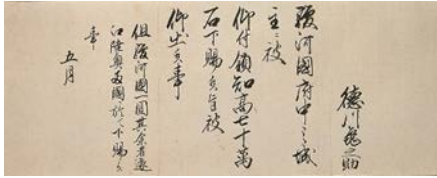 徳川亀之助
駿河國府中之城
主ニ被
仰付領知高七十萬
石下賜候旨被
仰出候事
但駿河國一圓其余者遠
江陸奥両國於テ下賜候
事
五月